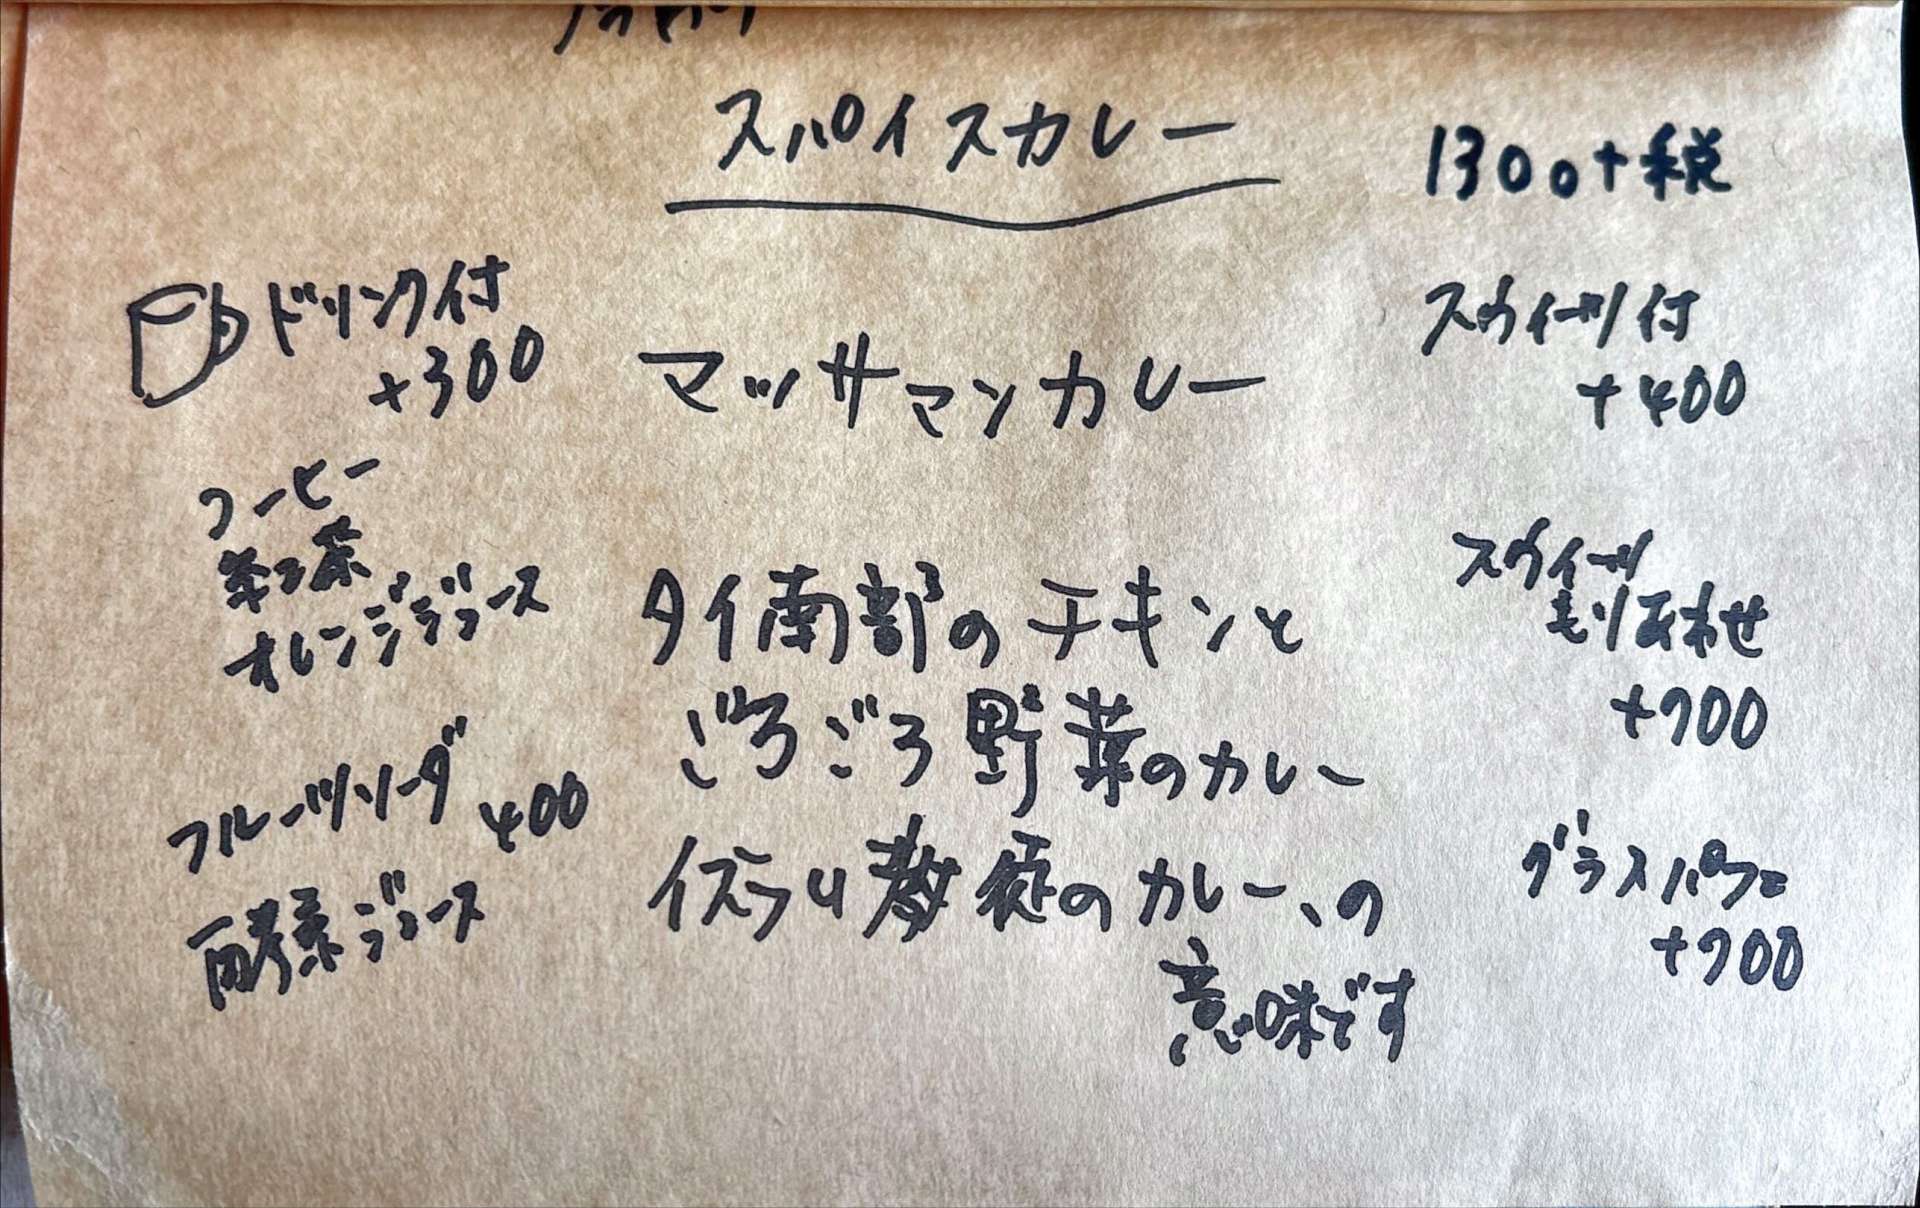 スパイスカレー
1300+税
ドリンク付
+300
コーヒー
オレンジジュース
フルーツソーダ
400
酵素ジュース
マッサマンカレー
タイ南部のチキンと
ごろごろ野菜のカレー
イスラム教徒のカレー、の
意味です
スウィーツ付
+400
スウィーツ
もりあわせ
+700
グラスパフェ
+700